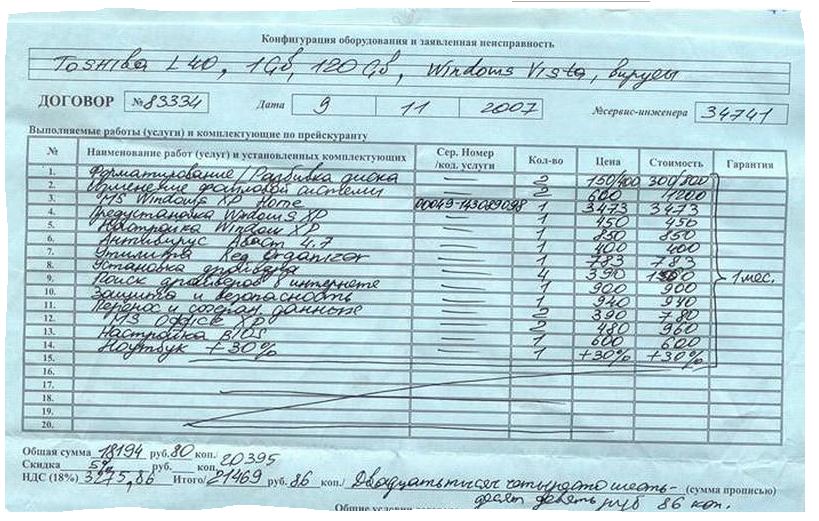 Конфигурация оборудования и заявленная неисправность
Toshiba L40, 1Gб, 120 Gб, Windows Vista, вирусы
ДОГОВОР №83334 Дата 9 11 2007 №сервис-инженера 34741
Выполняемые работы (услуги) и комплектующие по прейскуранту
№ Наименование работ (услуг) и установленных комплектующих Сер. Номер /код. услуги Кол-во Цена Стоимость Гарантия
1. Форматирование/Разбивка диска — 2 150/400 300/800
2. Изменение файловой системы — 2 600 1200
3. MS Windows XP Home 00049-143089098 1 3473 3473
4. Предустановка Windows XP — 1 450 450
5. Настройка Window XP — 1 850 850
6. Антивирус Аваст 4.7 — 1 400 400
7. Утилита Reg Organizer — 1 783 783
8. Установка драйвера — 4 390
9. Поиск драйверов в интернете — 1 900 900 1 мес.
10. Защита и безопасность — 1 940 940
11. Перенос и сохран. данных — 2 390 780
12. MS Office — 2 480 960
13. Настройка BIOS — 1 600 600
14. Ноутбук +30% — 1 +30% +30%
15.
16.
17.
18.
19.
20.
Общая сумма 18194 руб. 80 коп. 20395
Скидка 5% руб. коп.
НДС (18%) 3275,86 Итого/ 21469 руб. 86 коп./ Двадцать тысяч четыреста шесть- (сумма прописью)
десят девять руб 86 коп.
Общие условия